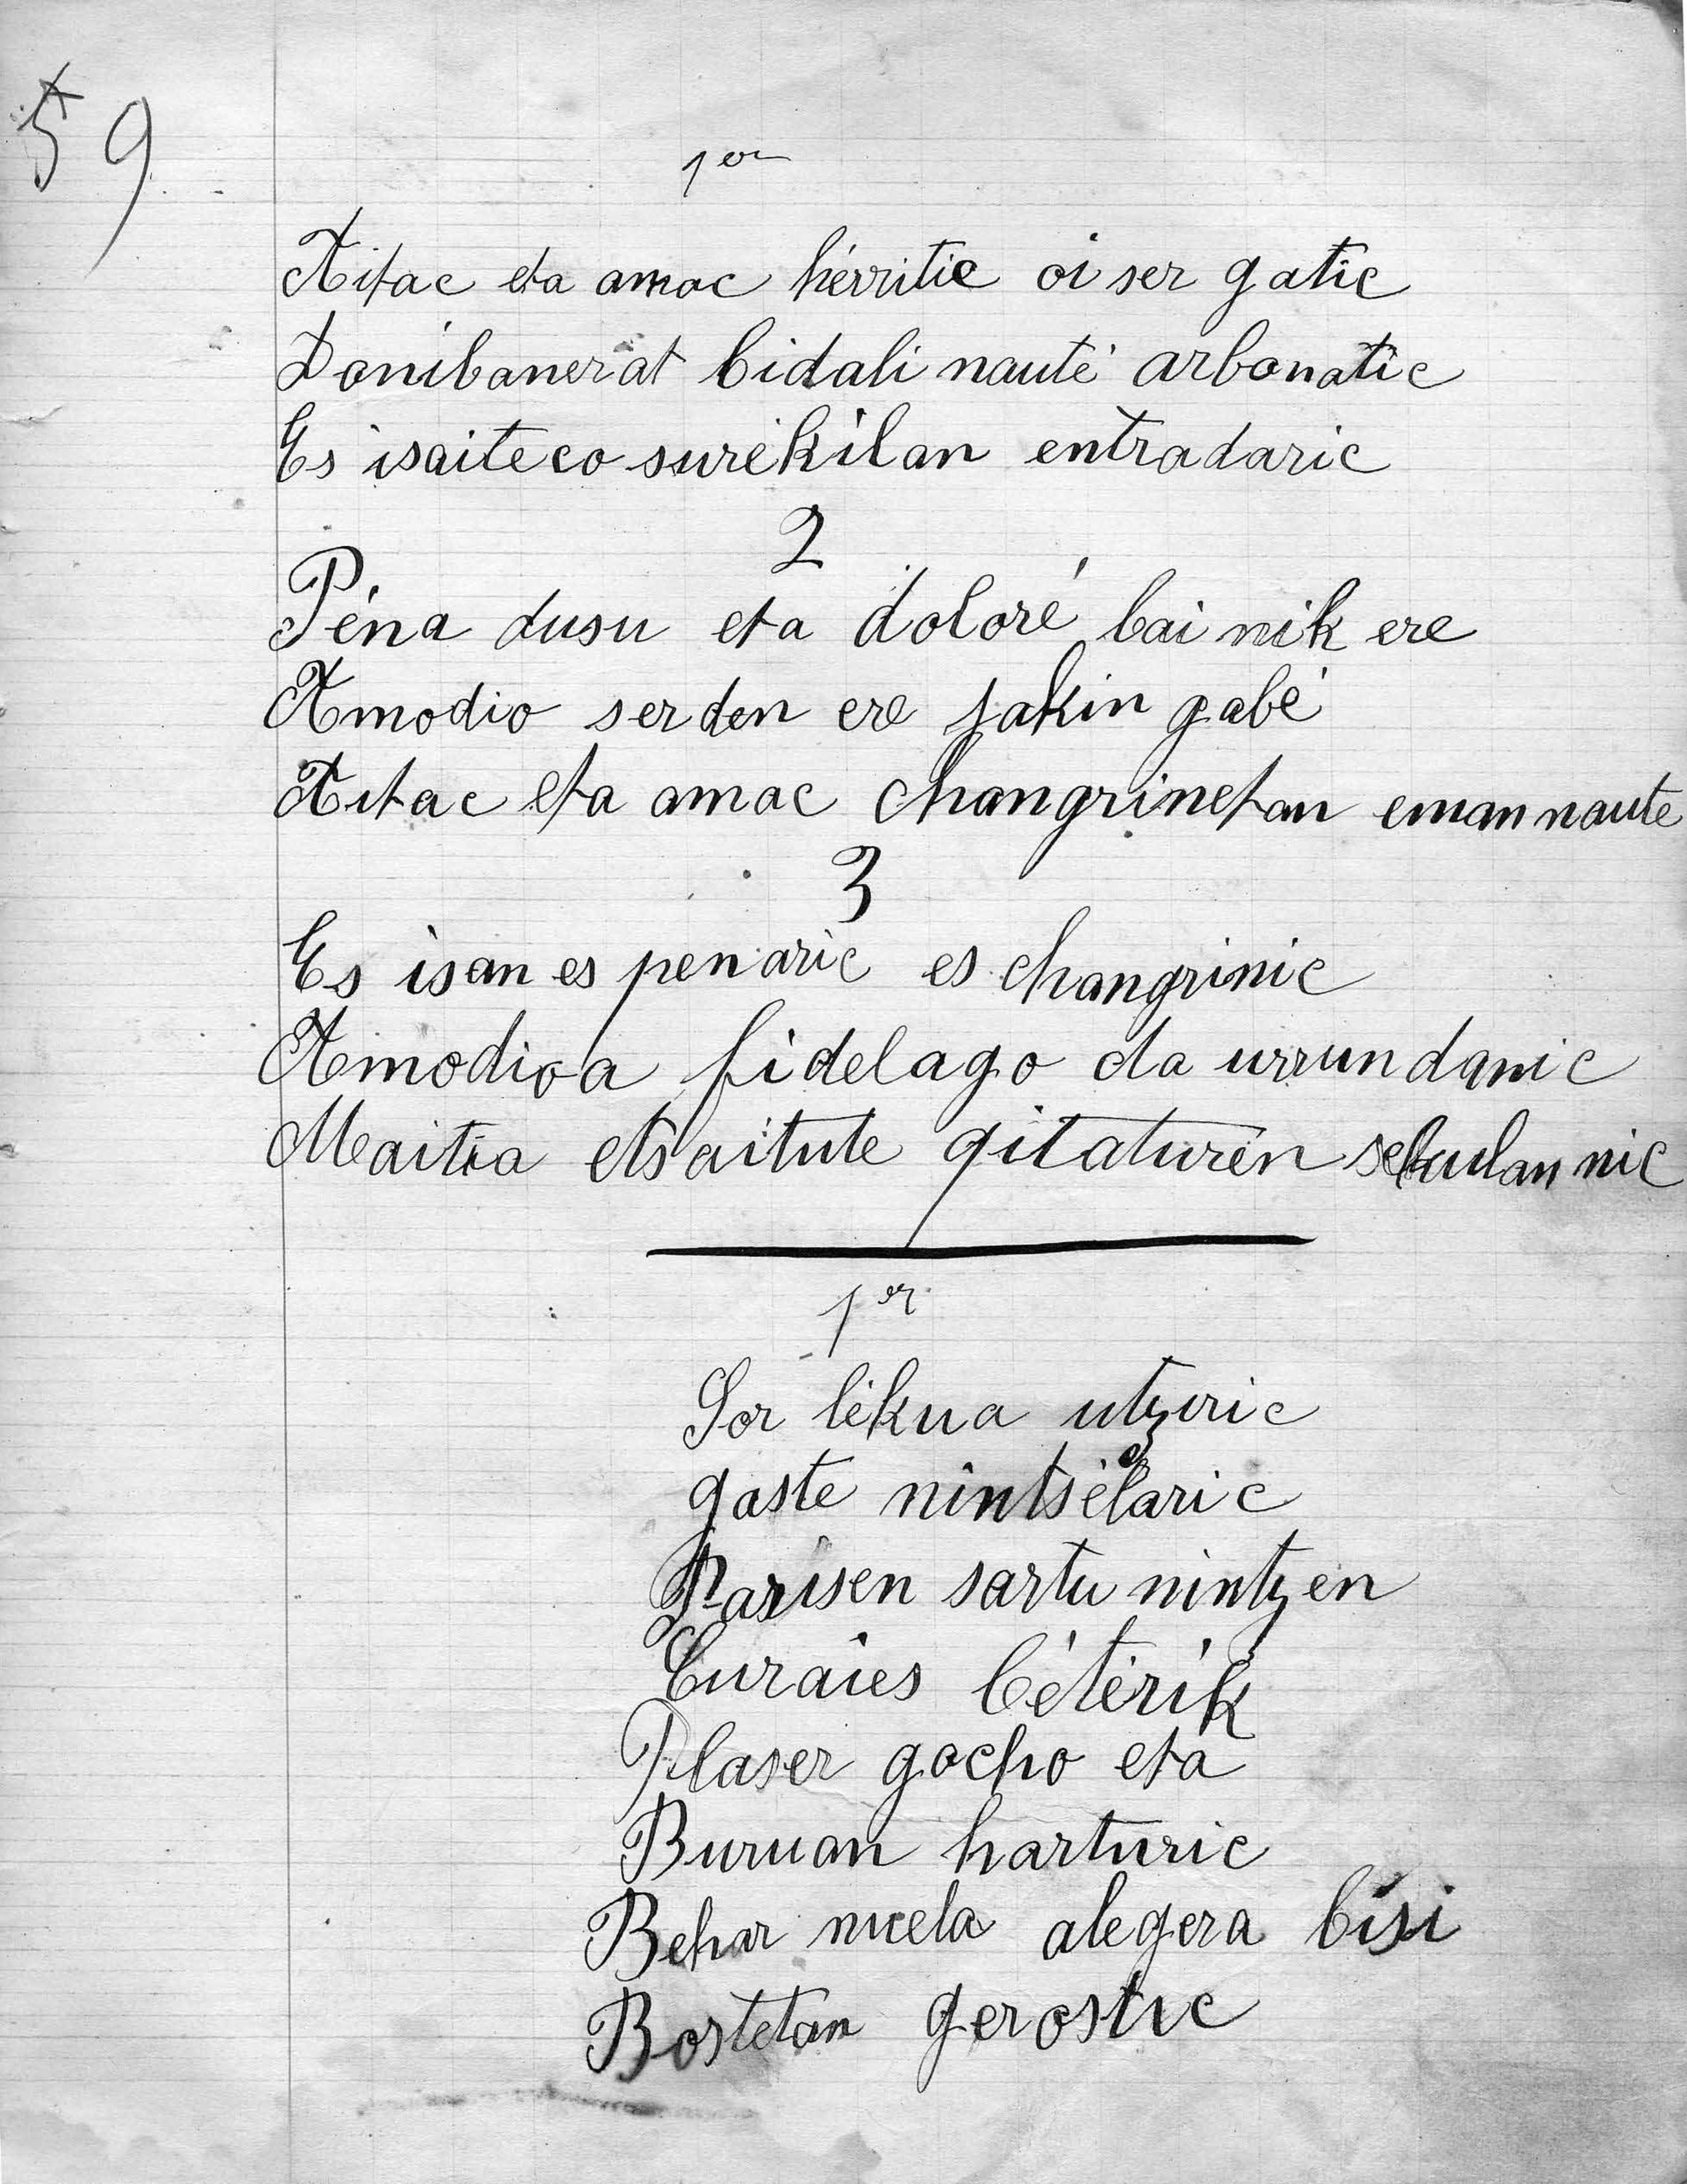 59
1er
Aitac eta amac hérritic oi ser gatic
Donibanerat bidali nauté arbonatic
Es isaiteco surekilan entradaric
2
Péna dusu eta doloré bai nik ere
Amodio ser den ere jakin gabé
Aitac eta amac changrinetan eman naute
3
Es isan es penaric es changrinic
Amodioa fidelago da urrundanic
Maitia etsaitute qitaturen sekulan nic
1er
Sor lékua utziric
gaste nintsélaric
Parisen sartu nintzen
Curaies bétérik
Plaser gocho eta
Buruan harturic
Behar nuela alegera bisi
Bostetan gerostic